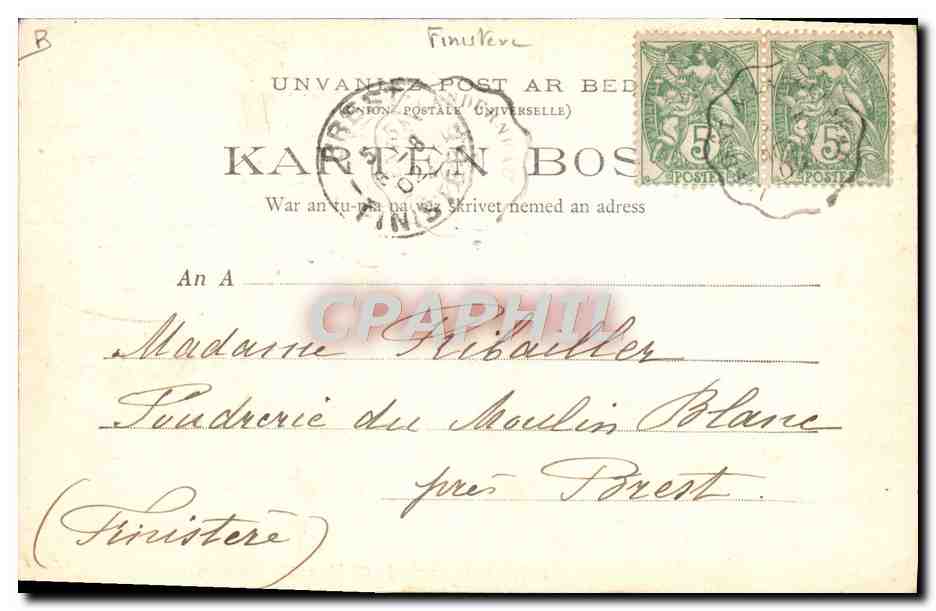 B
Finistere
UNVANIEZ POST AR BED
(UNION POSTALE UNIVERSELLE)
KARTEN BOS
War an tu-ma na vez skrivet nemed an adress
BREST
FINISTERE
5
POSTES
5
POSTES
An A
CPAPHIL
Madame Ribailler
Poudrerie du Moulin Blanc
près Brest.
(Finistère)